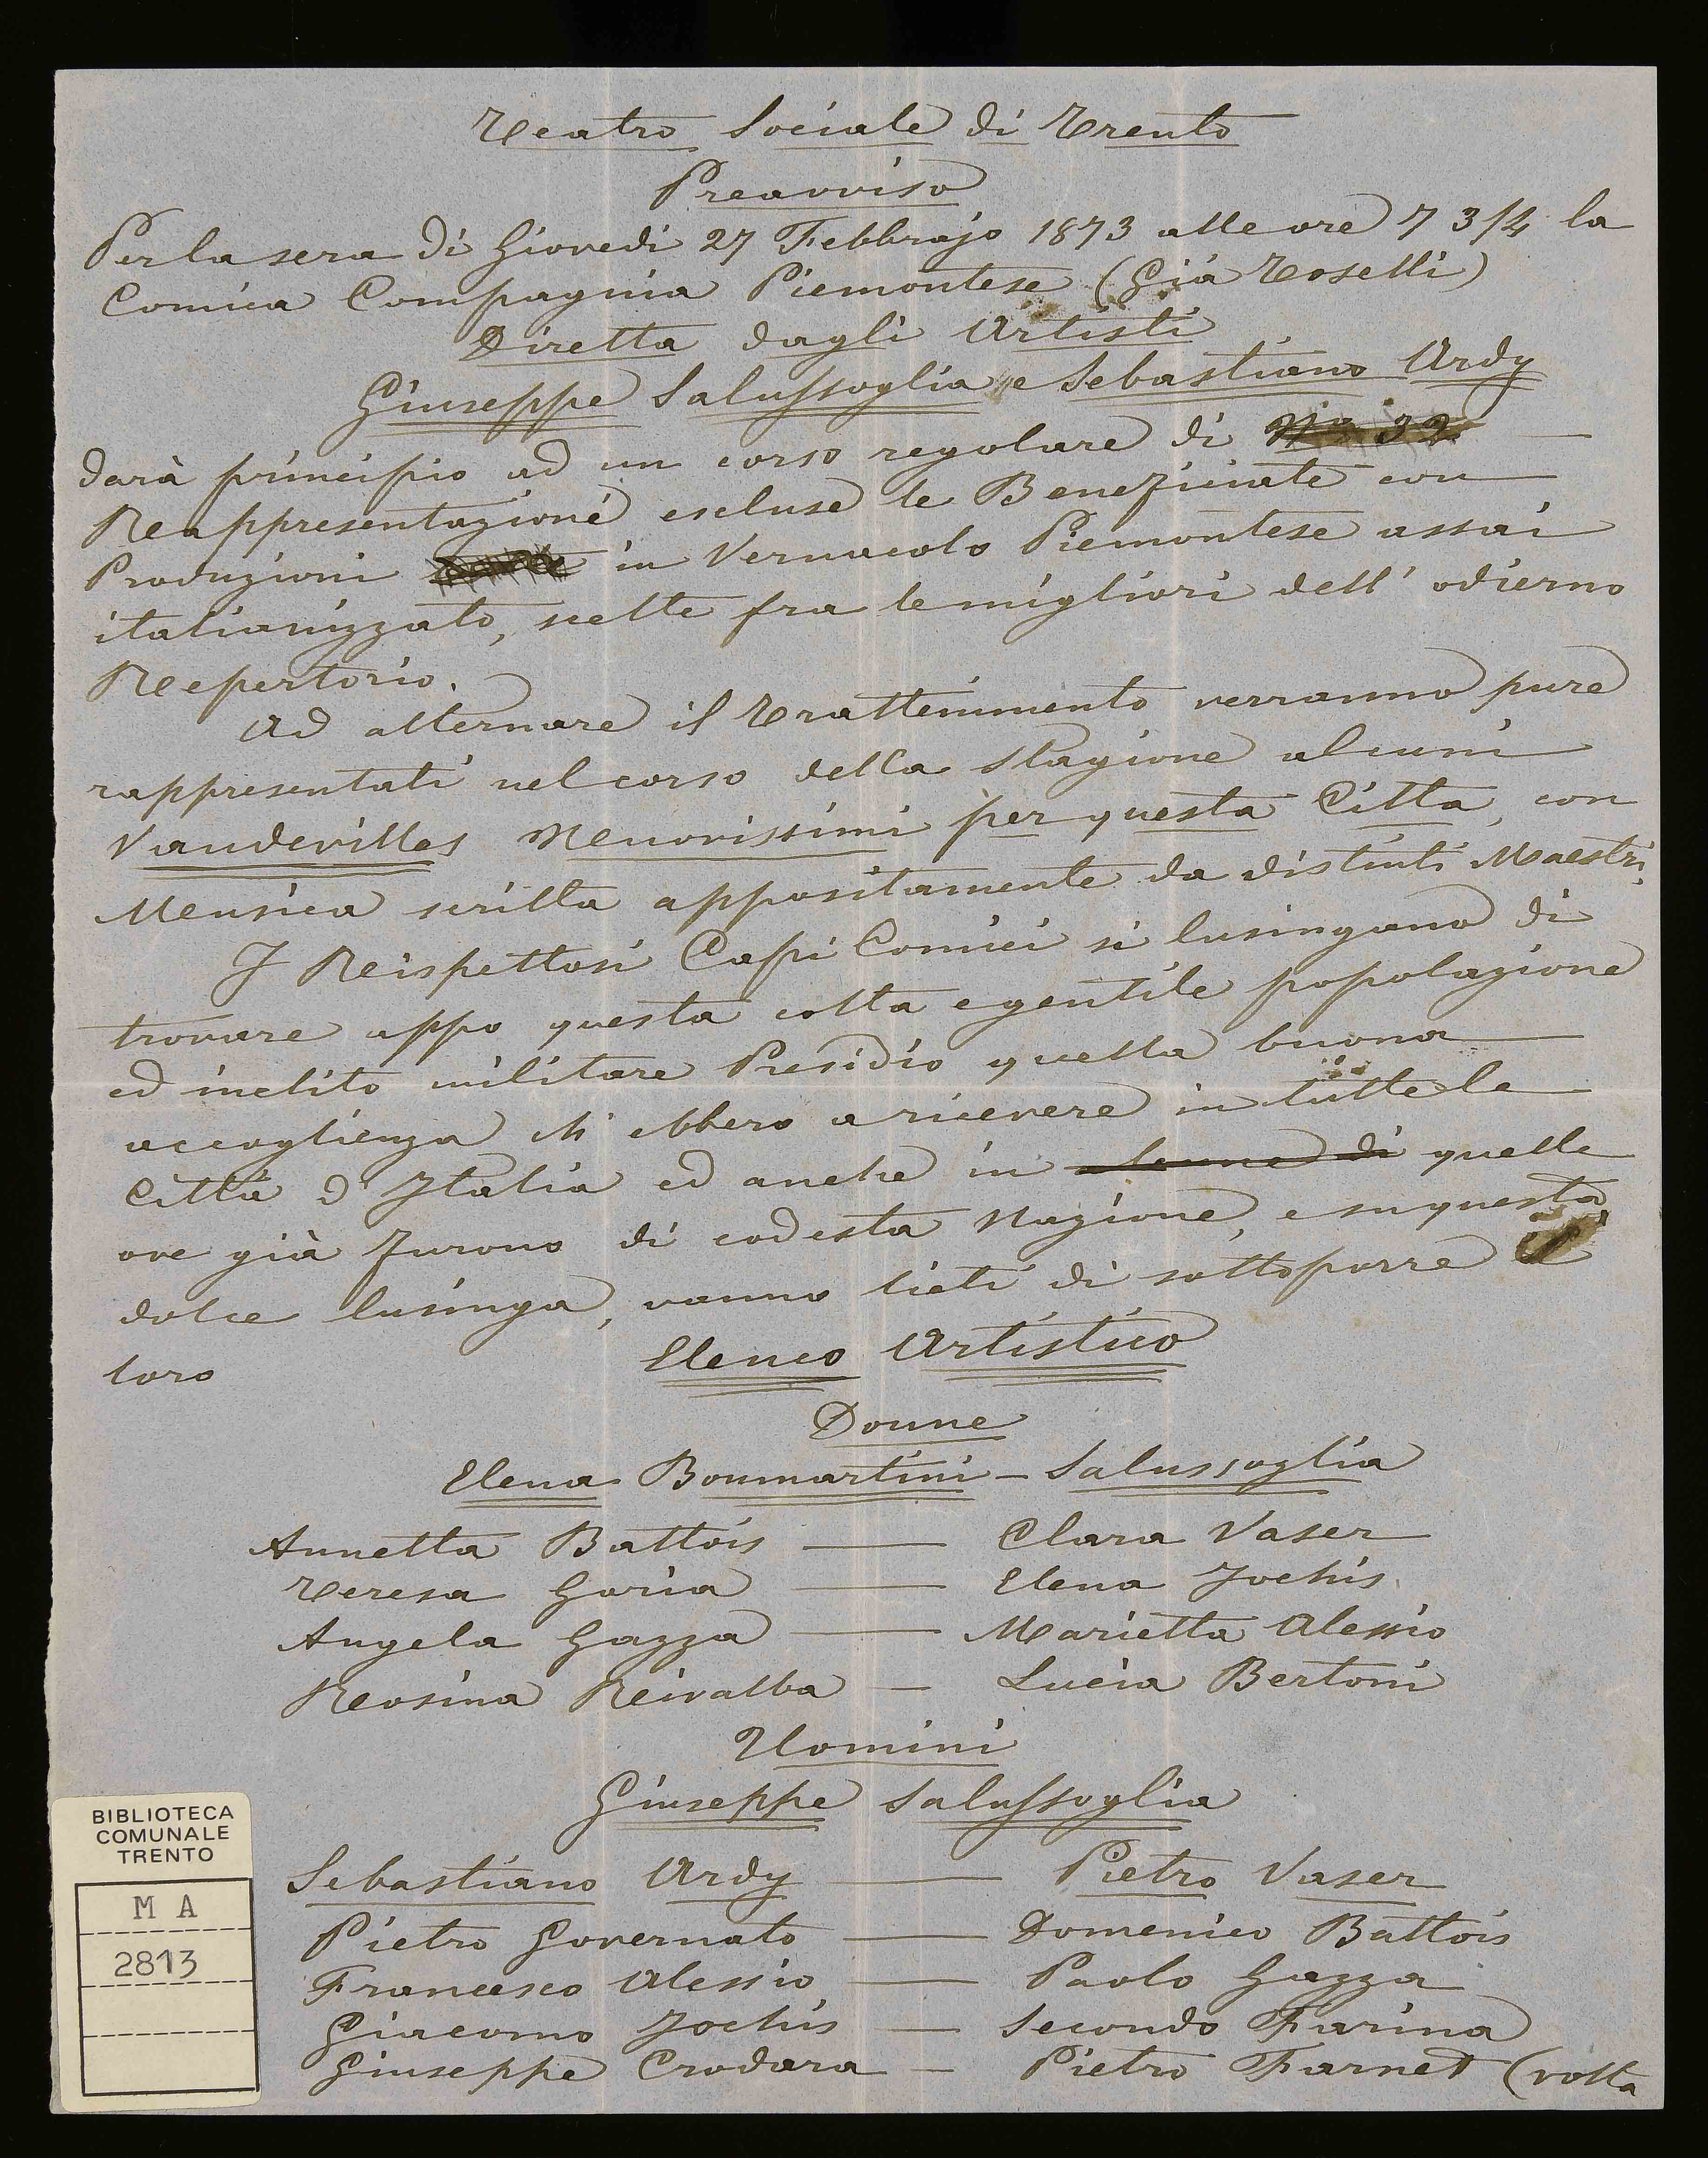 Teatro Sociale di Trento
Preavviso
Per la sera di Giovedi 27 Febbrajo 1873 alle ore 7 3/4 la
Comica Compagnia Piemontese (Già Toselli)
Diretta dagli Artisti
Giuseppe Salussoglia e Sebastiano Ardy
darà principio ad un corso regolare di No 32
Rappresentazioni escluse le Beneficiate con
Produzioni in Vernacolo Piemontese assai
italianizzato, scelte fra le migliori dell' odierno
Repertorio.
Ad alternare il Trattenimento verranno pure
rappresentati nel corso della Stagione alcuni
Vaudevilles Nuovissimi per questa Città, con
Musica scritta appositamente da distinti Maestri.
I Rispettosi Capi Comici si lusingano di
trovare appo questa colta e gentile popolazione
ed inclito militare Presidio quella buona
accoglienza ch' ebbero a ricevere in tutte le
Città d' Italia ed anche in alcune di quelle
ove già furono di codesta Nazione, e su questa
dolce lusinga, vanno lieti di sottoporre il
loro
Elenco Artistico
Donne
Elena Bonmartini - Salussoglia
Annetta Battois — Clara Vaser
Teresa Goria — Elena Jochis
Angela Gazza — Marietta Alessio
Rosina Rivalba — Lucia Bertoni
Uomini
Giuseppe Salussoglia
Sebastiano Ardy — Pietro Vaser
Pietro Governato — Domenico Battois
Francesco Alessio — Paolo Gazza
Giacomo Jochis — Secondo Farina
Giuseppe Crodara — Pietro Farnet (volta
BIBLIOTECA
COMUNALE
TRENTO
M A
2813